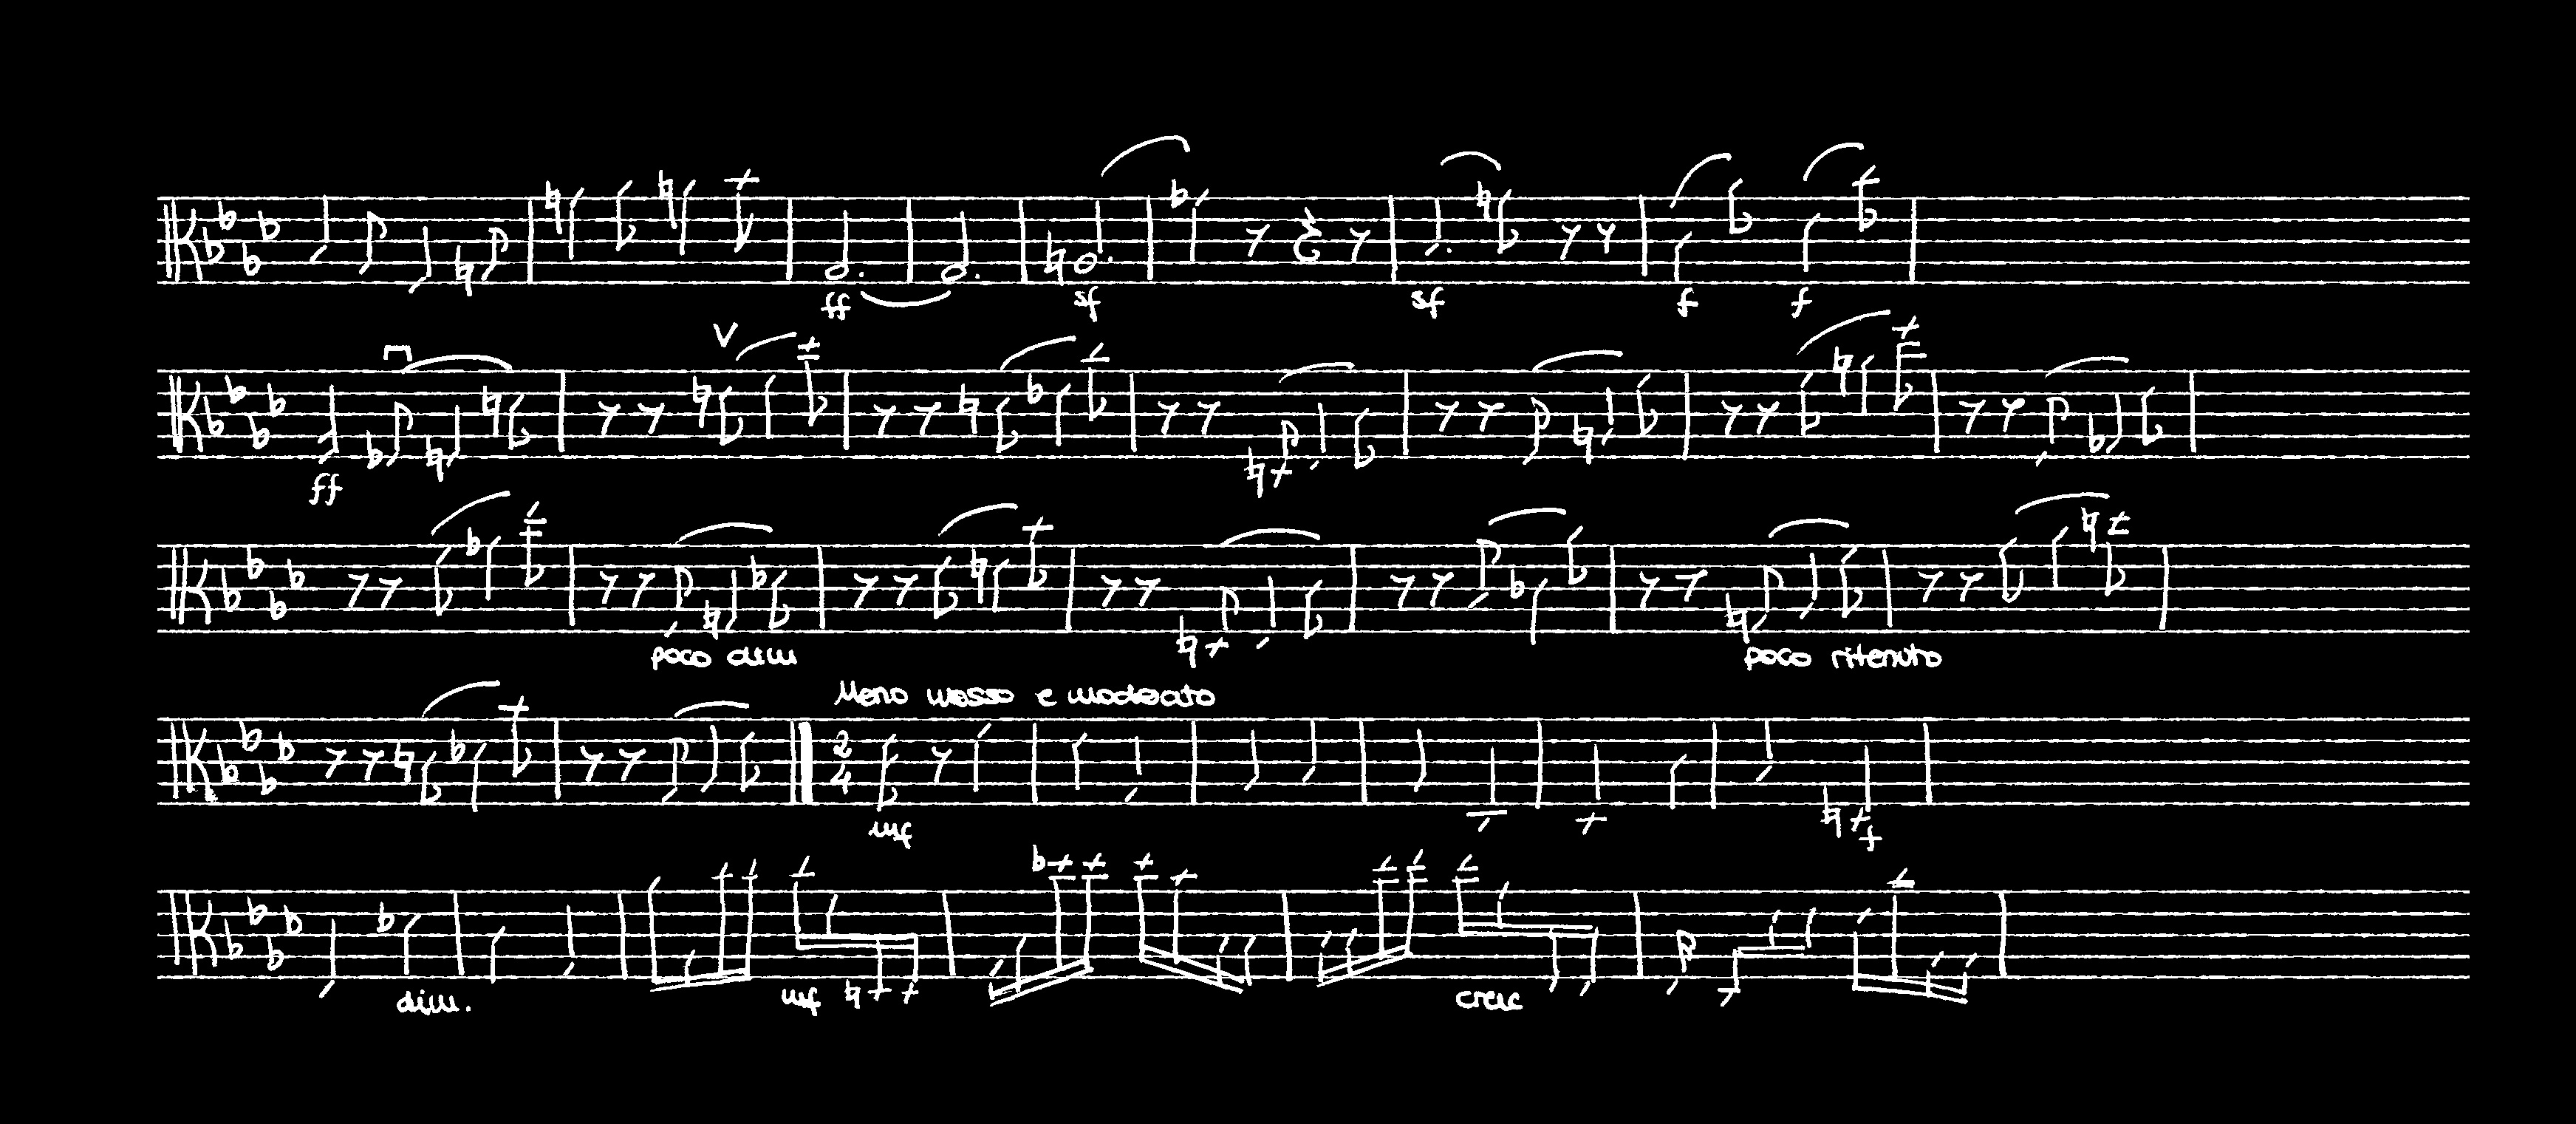 ff sf sf f f
V
ff
poco dim poco ritenuto
Meno mosso e moderato
2
4
mf f
dim. mf cresc